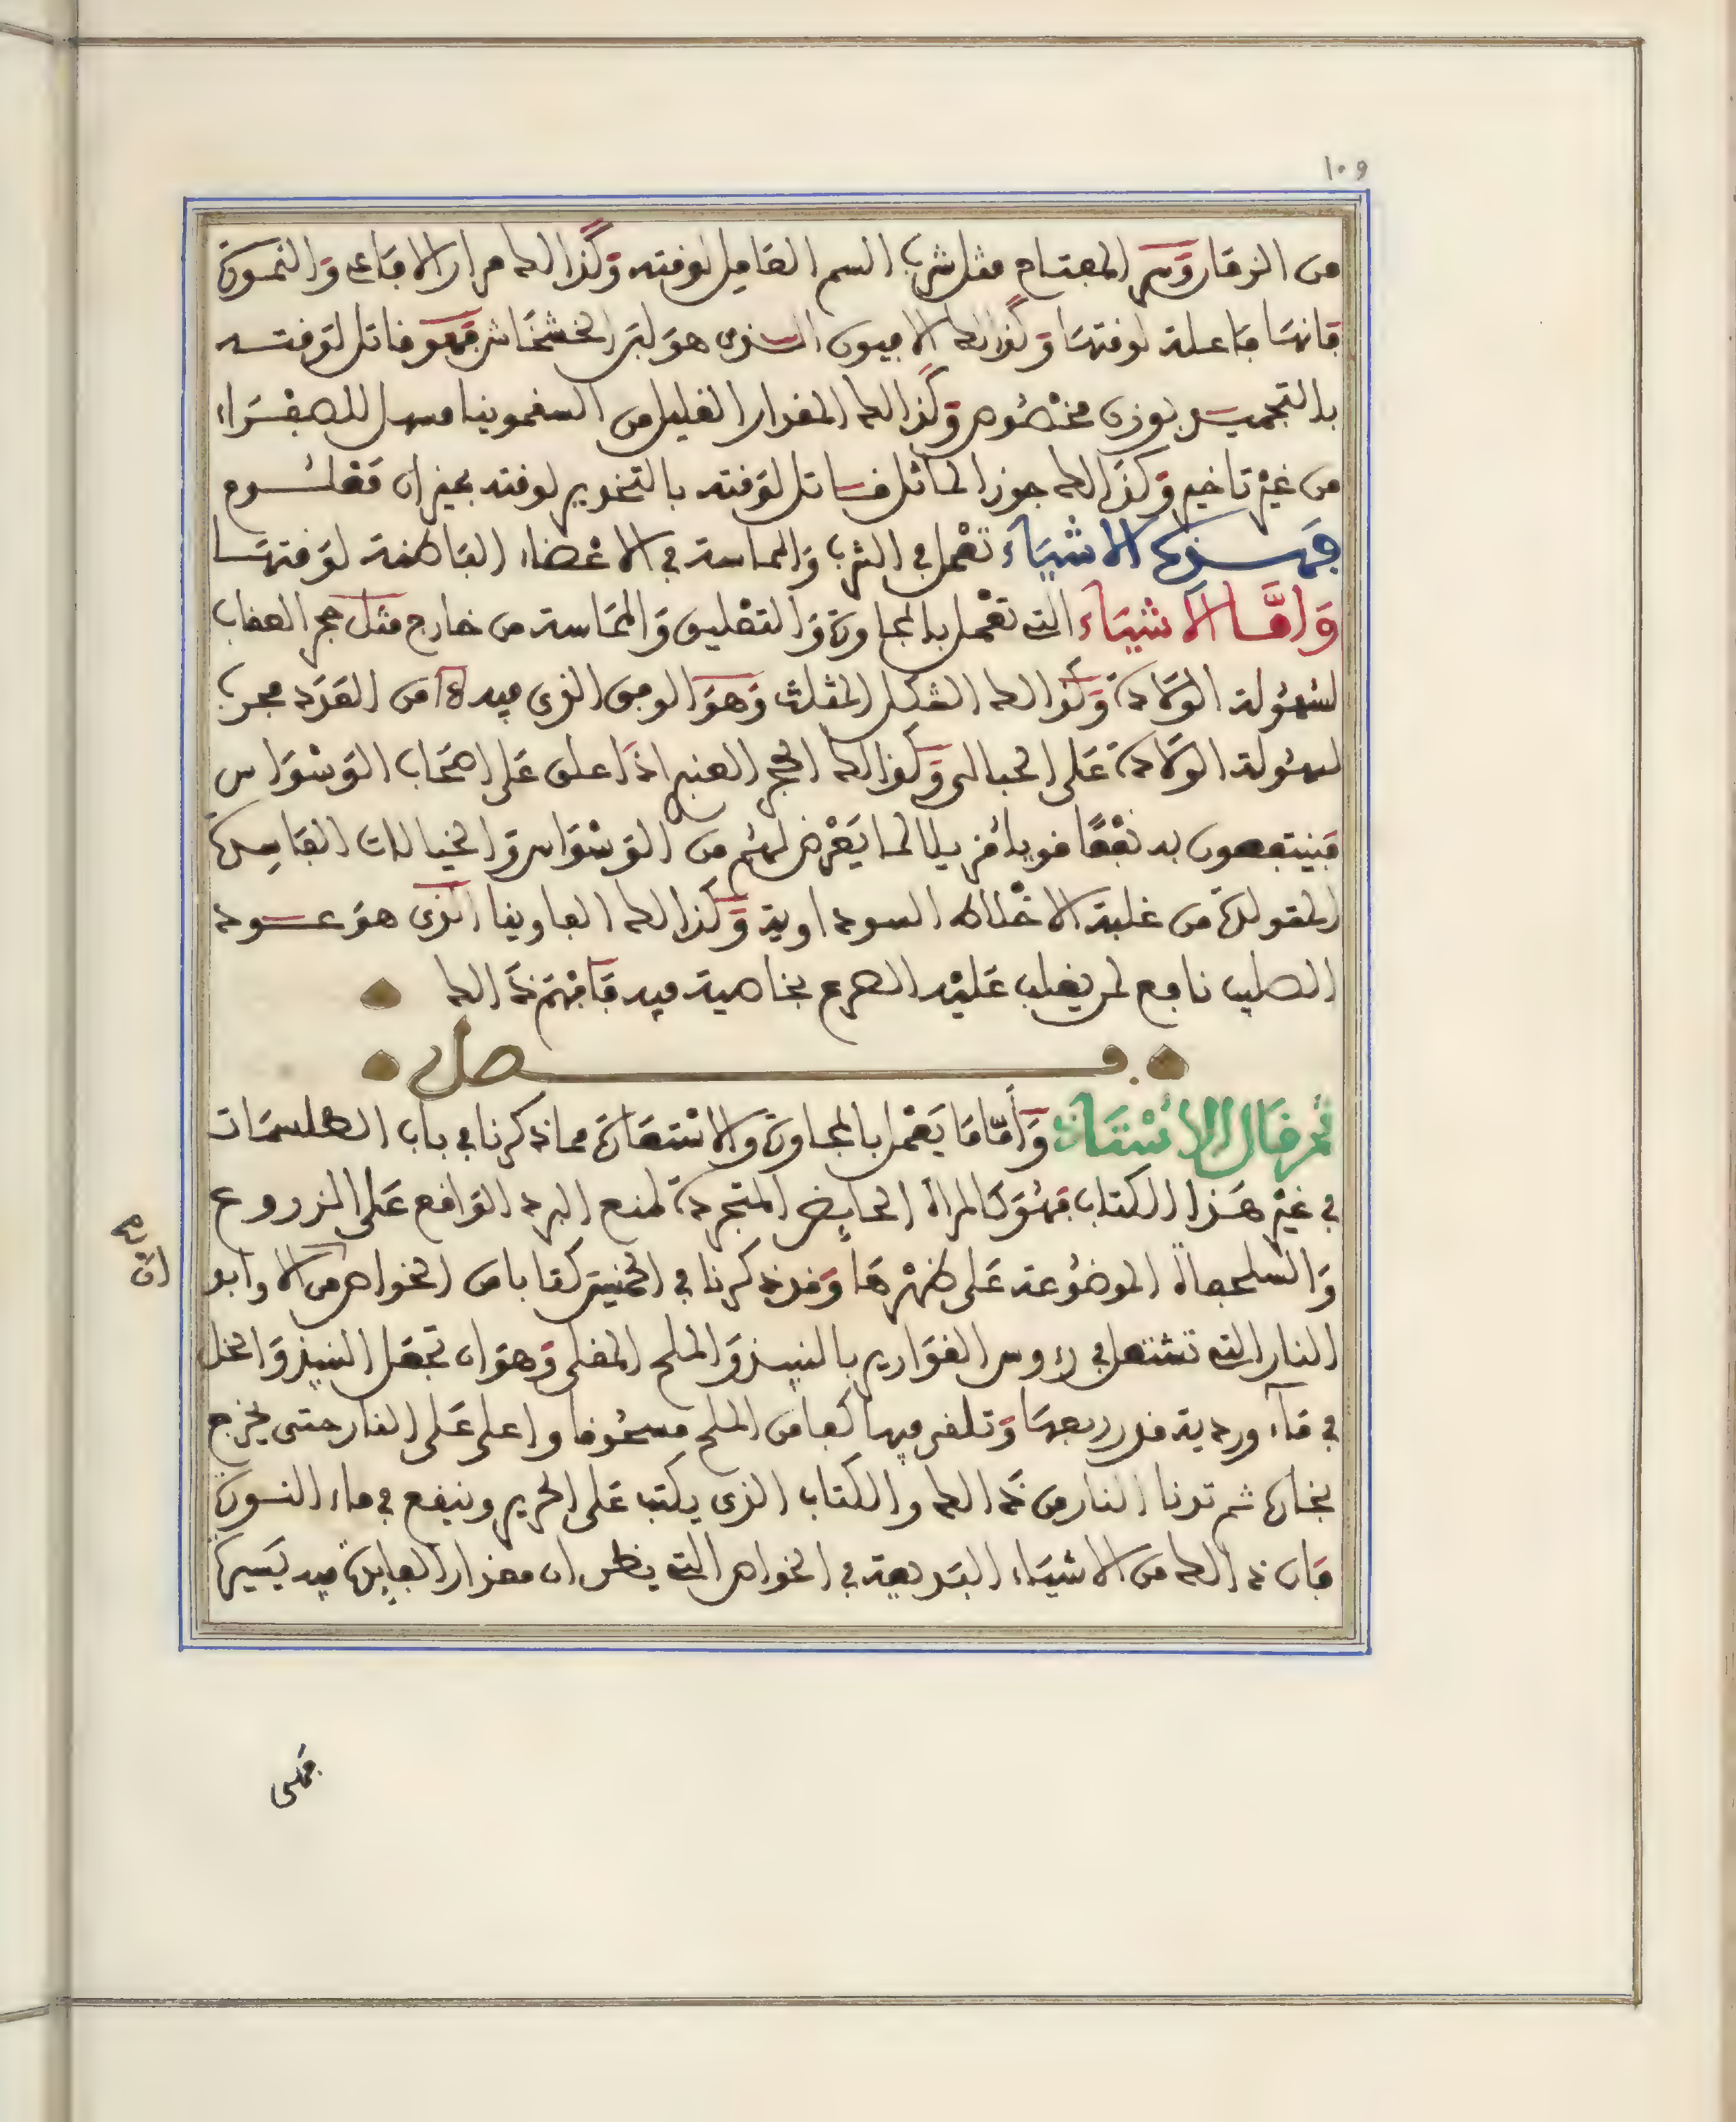 ١٠٩
من الزمان وسر المفتاح مثل شرب السم القاتل لوقته وكذالك مرار الافاعى والنمورة
فانها فاعلة لوقتها وكذالك الافيون الذى هو لبن الخشخاش فهو قاتل لوقته
بالتجميد بوزن مخصوص وكذالك المقدار القليل من السقمونيا مسهل للصفراء
من غير تاخير وكذالك جوز الماثل قاتل لوقته بالتخدير لوقته بميزان معلوم
فهذه الاشياء تعمل في الشرب والمماسة في الاعضاء الباطنة لوقتها
وامّا الاشياء التى تعمل بالمجاورة والتعليق والمماسة من خارج مثل حجر العقاب
لسهولة الولادة وكذالك الشكل المثلث وهو الوفق الذى فيه من العدد مجرب
لسهولة الولادة على الحبالى وكذالك الحجر العنبر اذا علق على اصحاب الوسواس
فينتفعون به نفعا قويا مزيلا لما يعرض لهم من الوسواس والخيالات الفاسدة
المتولدة من غلبة الاخلاط السوداوية وكذالك الفاوينا الذى هو عود
الصليب نافع لمن يغلب عليه الصرع بخاصية فيه فافهم ذالك
فصل
ثم قال الاستاذ وأمّا ما يعمل بالمجاورة والاستعارة مما ذكرنا في باب الطلسمات
في غير هذا الكتاب فهو كالمراة الحايض المتجردة لمنع البرد الواقع على الزروع
والسلحفاة الموضوعة على ظهرها وقد ذكرنا في كتابا من الخواص من الاوابو
النار التى تشتعل في رءوس القوارير بالنبيذ والملح المغلى وهو ان تجعل النبيذ والخل
في ماء وردية قدر ربعها وتلقى فيها كفا من الملح مسحوقا واعلى على النار حتى يخرج
بخارها ثم تدنا النار من ذالك والكتاب الذى يكتب على الحرير وينقع في ماء النورة
فان ذالك من الاشياء البديعة في الخواص التى يظن ان مقدار الفايدة فيه يسيرة
فمتى